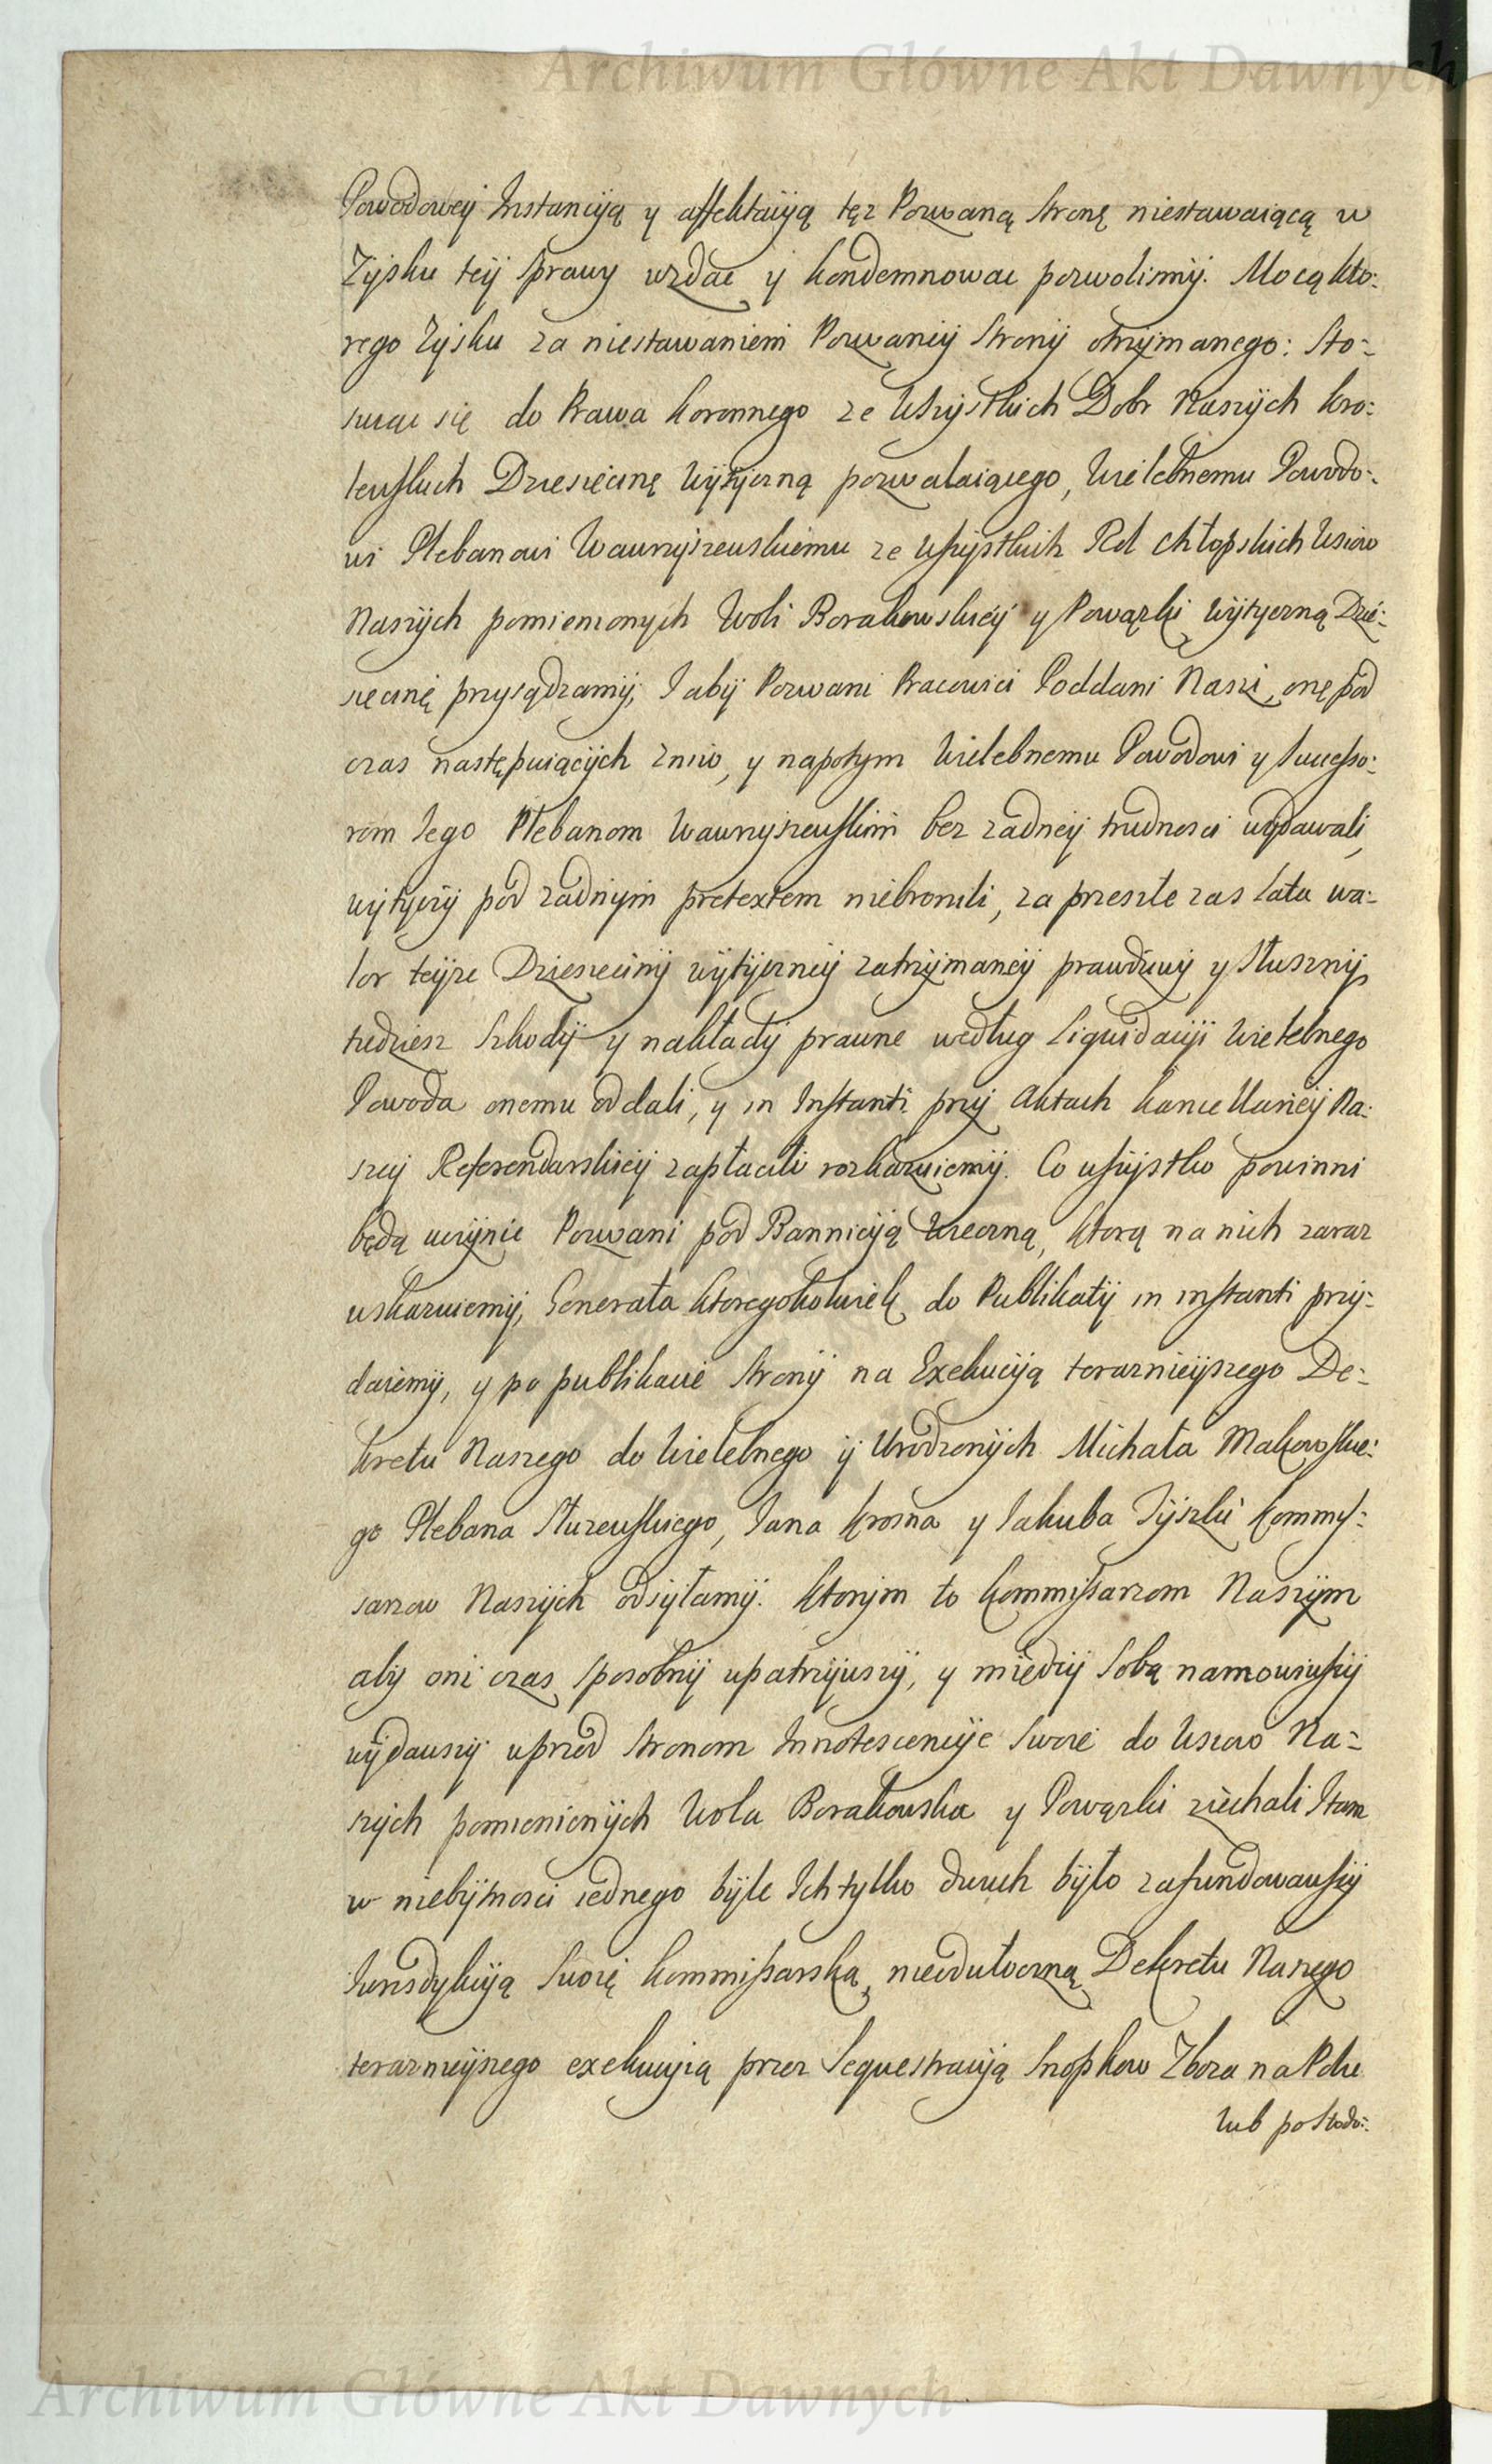 Archiwum Główne Akt Dawnych
Powodowey Instancyią y affektacyią tęz Pozwaną Stronę niestawaiącą w
Zysku tey Sprawy wzdac y kondemnowac pozwolismy. Mocą kto:
rego Zysku za niestawaniem Pozwaney Strony otrzymanego: Sto:
suiac się do Prawa Koronnego ze Wszystkich Dobr Naszych Kro:
lewskich Dziesięcinę Wytyczną pozwalaiącego, Wielebnemu Powodo:
wi Plebanowi Wawrzyszewskiemu ze wszystkich Rol chłopskich Wsiow
Naszych pomienionych Woli Borakowskiey y Powązki Wytyczną Dzie:
sięcinę przysądzamy; Iaby Pozwani Pracowici Poddani Nasi, onę pod
czas następuiących zniw, y napotym Wielebnemu Powodowi y Successo:
rom Iego Plebanom Wawrzyszewskim bez zadney trudnosci wydawali,
wytyczy pod zadnym pretextem niebronili, za przeszłe zas Lata wa:
lor teyze Dziesięciny wytyczney zatrzymaney prawdziwy y słuszny,
tudziesz Szkody y nakłady prawne według Liquidacyi Wielebnego
Powoda onemu oddali, y in Instanti przy Aktach Kancellariey Na:
szey Referendarskiey zapłacili rozkazuiemy. Co wszystko powinni
będą uczynic Pozwani pod Bannicyią Wieczną, ktorą na nich zaraz
uskazuiemy, Generała ktoregokolwiek do Publikaty in instanti przy:
daiemy, y po publikacie Strony na Exekucyią terazniejszego De:
kretu Naszego do Wielebnego y Urodzonych Michała Makowskie:
go Plebana Służewskiego, Iana Krosna y Iakuba Tyszki Kommys:
sarzow Naszych odsyłamy. Ktorym to Kommissarzom Naszym
aby oni czas sposobny upatrzywszy, y między Sobą namowiwszy
wydawszy wprzod Stronom Innotescencyie Swoie do Wsiow Na:
szych pomienionych Wola Borakowska y Powązki ziechali Itam
w niebytnosci iednego byle Ich tylko dwuch było zafundowawszy
Iurisdykcyią Swoię Kommissarską, nieodwłoczną Dekretu Naszego
terazniejszego exekucyią przez Sequestracyią Snopkow Zboza na Polu
lub po Stodo:
Archiwum Główne Akt Dawnych